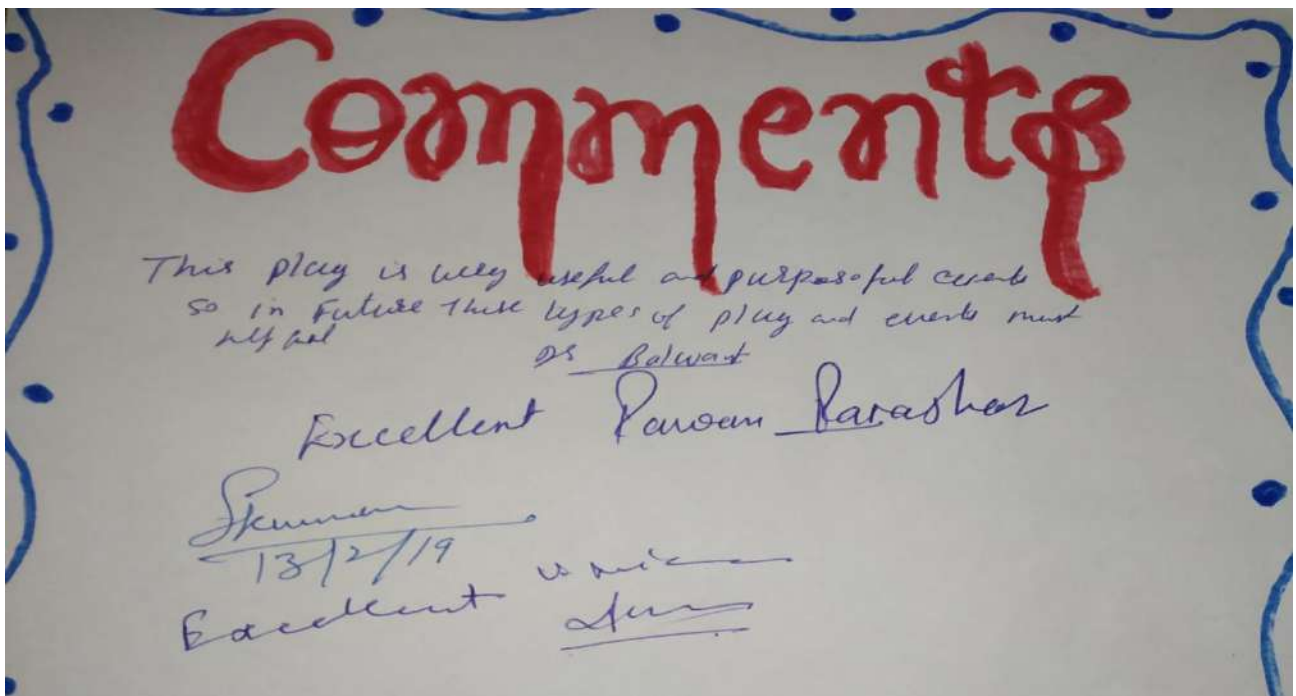 Comments
This play is very useful and purposeful events
so in Future these types of play and events must
Dr Balwant
Excellent Pawan Parashar
Skumar
13/2/19
Excellent